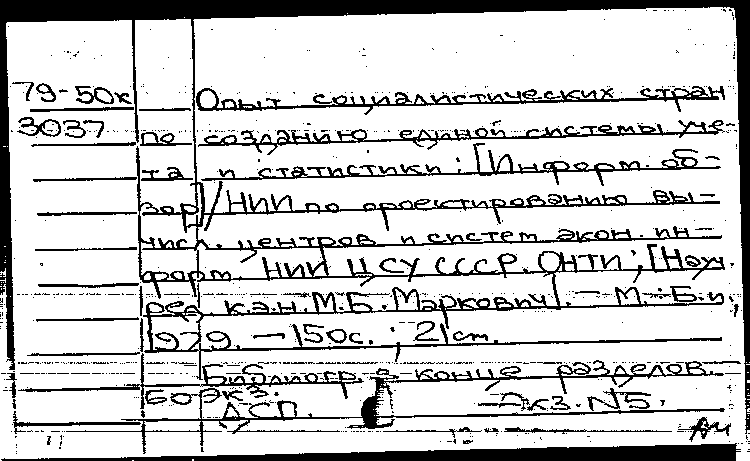 79-50к Опыт социалистических стран
3037 по созданию единой системы уче-
та и статистики: [Информ. об-
зор]/НИИ по проектированию вы-
числ. центров и систем экон. ин-
форм. НИИ ЦСУ СССР. ОНТИ; [Науч.
ред. к.э.н. М.Б. Маркович]. — М.: Б.и.,
1979. — 150с.; 21 см.
Библиогр. в конце разделов.
60 экз.
ДСП. Экз. N5.